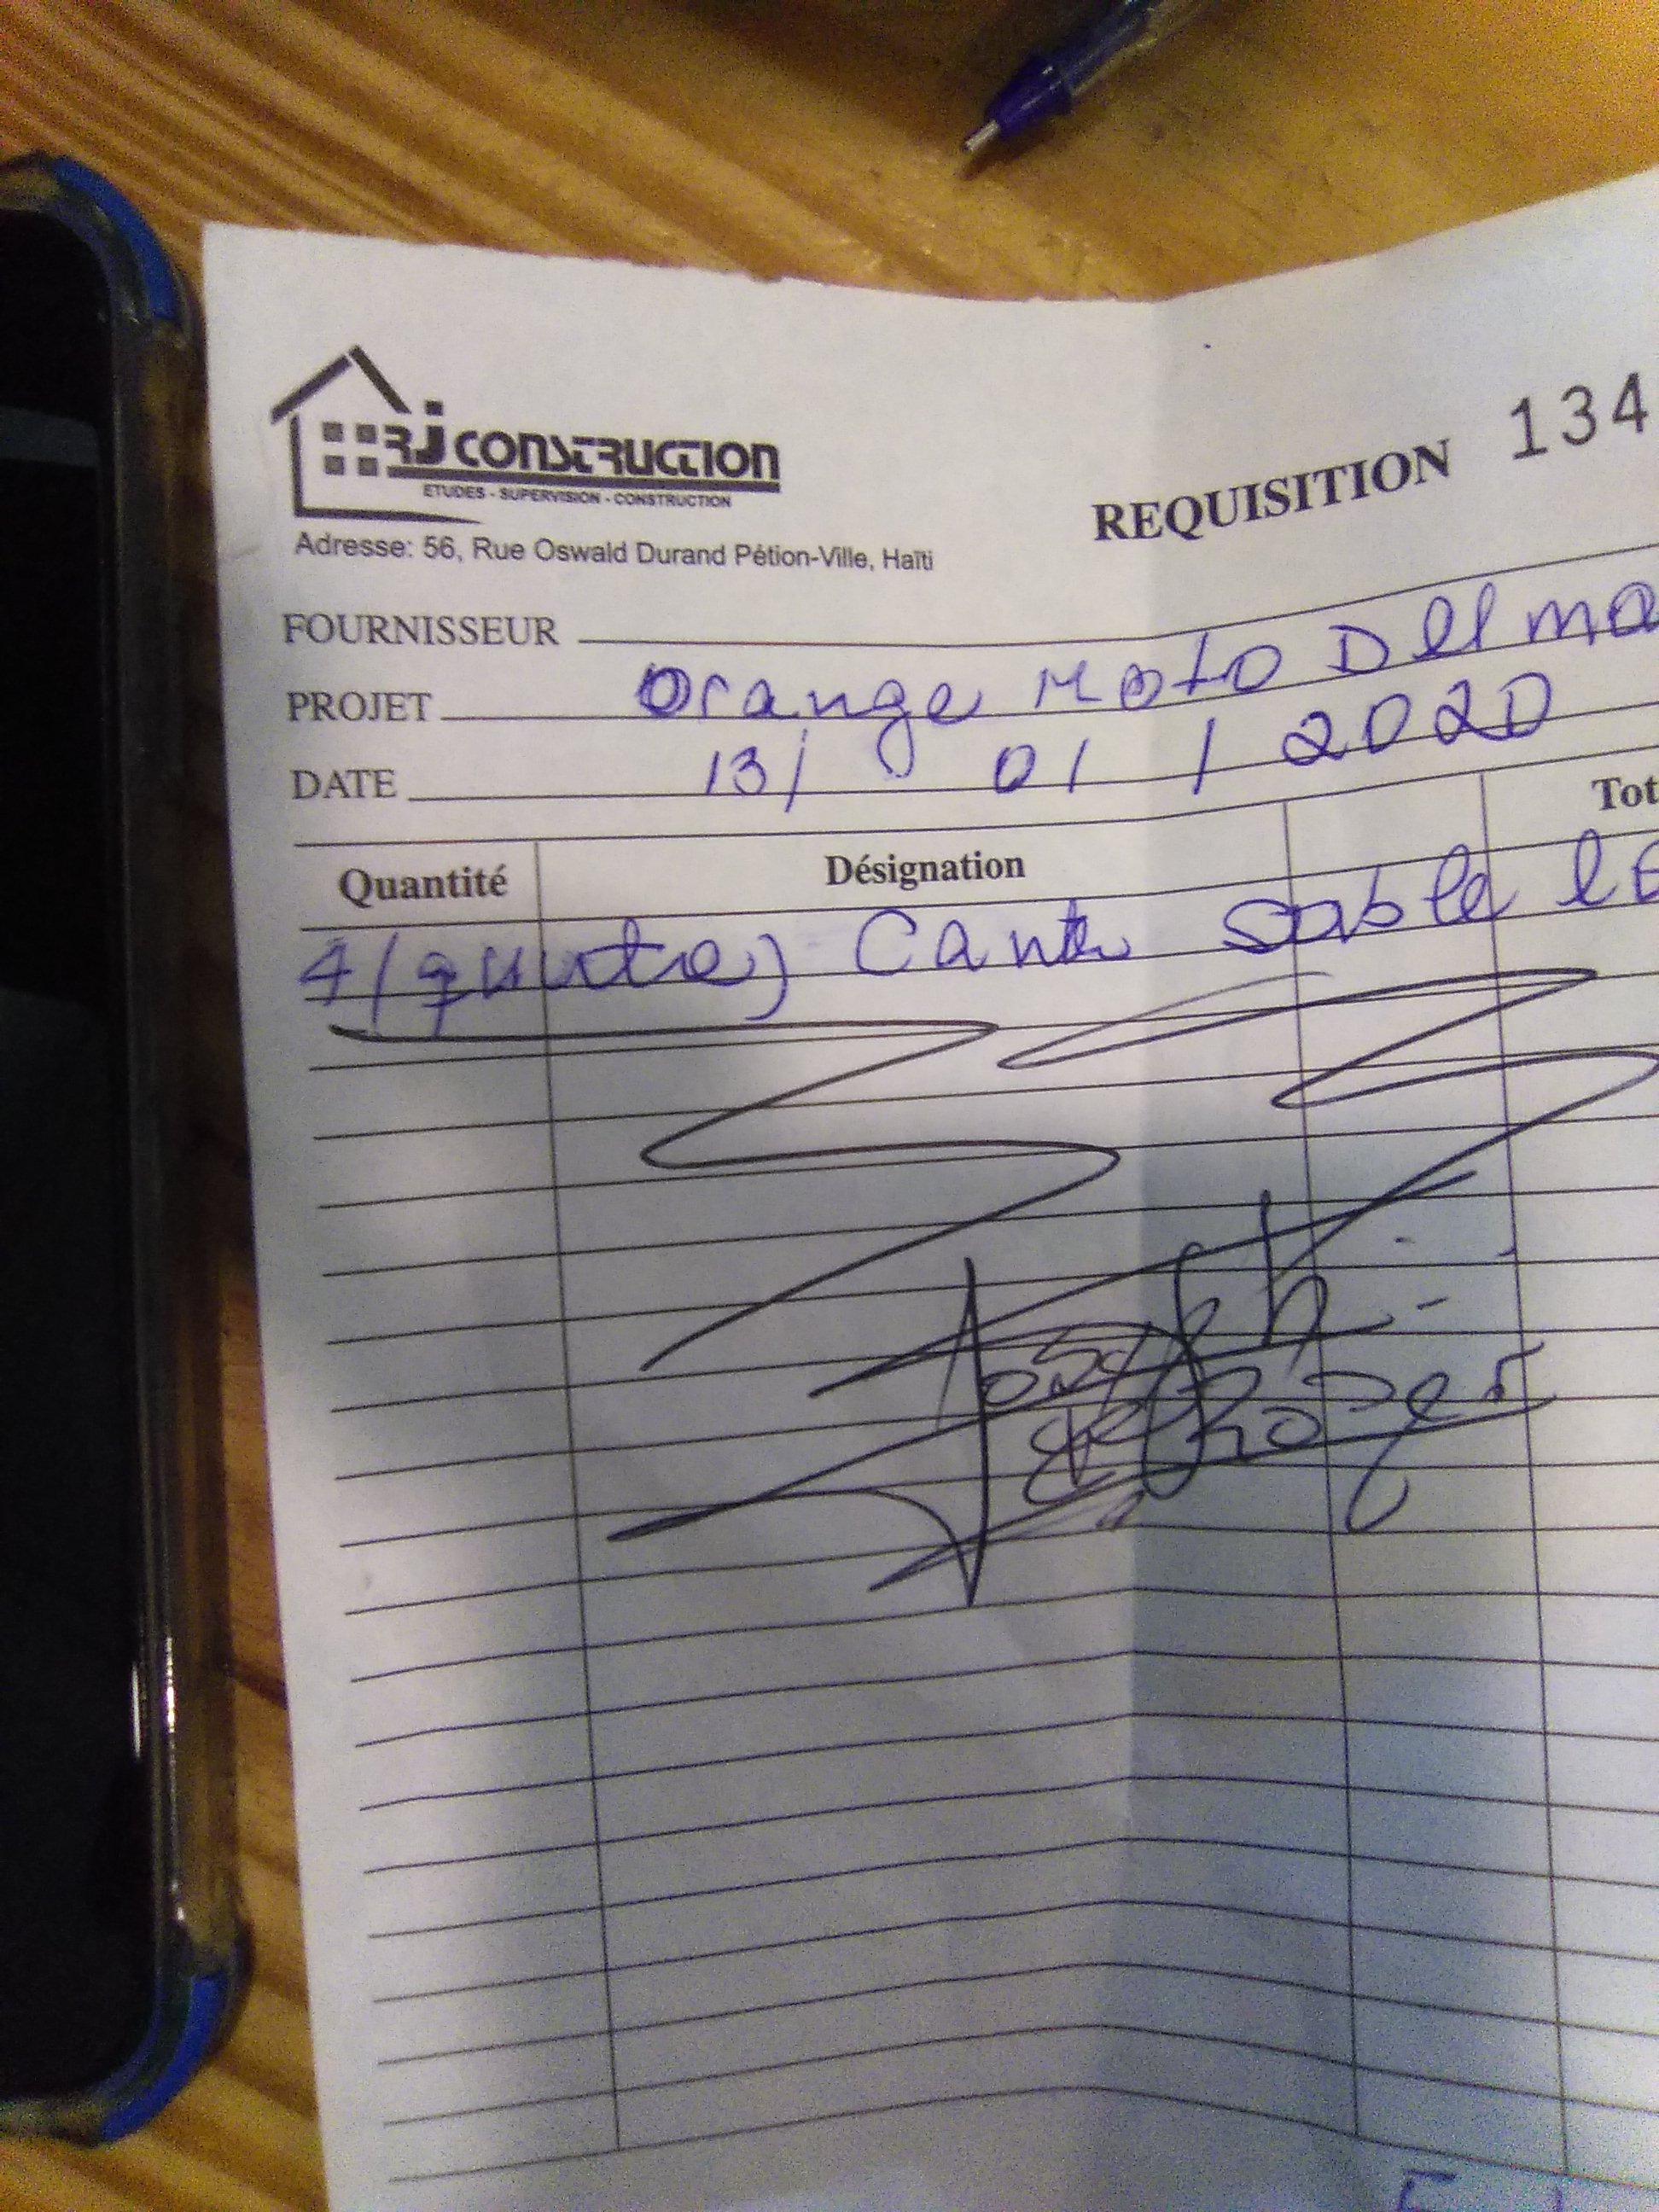 RJ CONSTRUCTION
ETUDES - SUPERVISION - CONSTRUCTION
Adresse: 56, Rue Oswald Durand Pétion-Ville, Haïti
REQUISITION 134
FOURNISSEUR
PROJET Orange Moto Delma
DATE 13/ 01 / 2020
Quantité Désignation Tot
4/ sable
Joseph
Roger